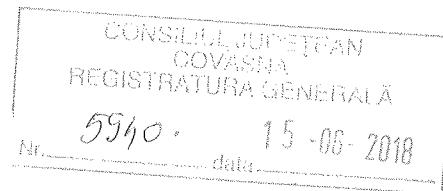 CONSILIUL JUDEȚEAN
COVASNA
REGISTRATURA GENERALĂ
Nr. 5940. data 15 -06- 2018